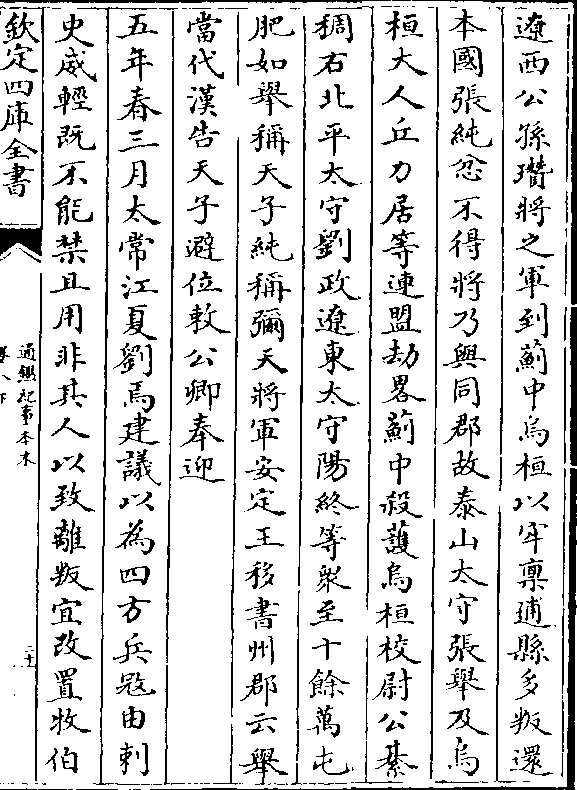 遼西公孫瓚將之軍到薊中烏桓以牢稟逋縣多叛還
本國張純忿不得將乃與同郡故泰山太守張舉及烏
桓大人丘力居等連盟劫畧薊中殺護烏桓校尉公綦
稠右北平太守劉政遼東太守陽終等衆至十餘萬屯
肥如舉稱天子純稱彌天將軍安定王移書州郡云舉
當代漢告天子避位敕公卿奉迎
五年春三月太常江夏劉焉建議以為四方兵冦由刺
史威輕既不能禁且用非其人以致離叛宜改置牧伯
欽定四庫全書
通鑑紀事本末